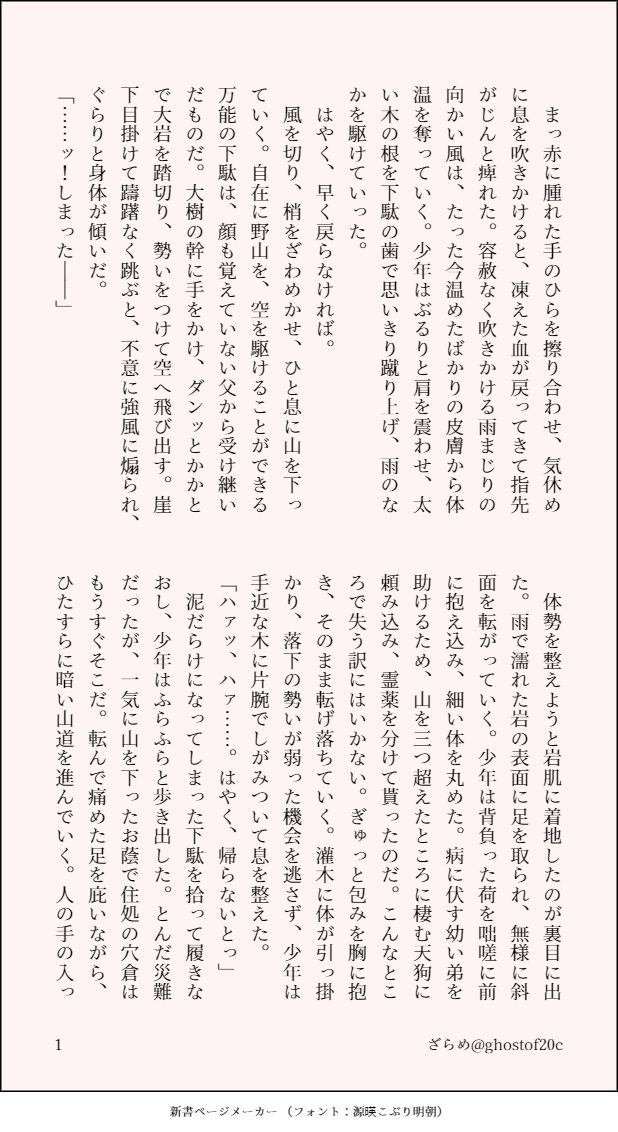 まっ赤に腫れた手のひらを擦り合わせ、気休め
に息を吹きかけると、凍えた血が戻ってきて指先
がじんと痺れた。容赦なく吹きかける雨まじりの
向かい風は、たった今温めたばかりの皮膚から体
温を奪っていく。少年はぶるりと肩を震わせ、太
い木の根を下駄の歯で思いきり蹴り上げ、雨のな
かを駆けていった。
　はやく、早く戻らなければ。
　風を切り、梢をざわめかせ、ひと息に山を下っ
ていく。自在に野山を、空を駆けることができる
万能の下駄は、顔も覚えていない父から受け継い
だものだ。大樹の幹に手をかけ、ダンッとかかと
で大岩を踏切り、勢いをつけて空へ飛び出す。崖
下目掛けて躊躇なく跳ぶと、不意に強風に煽られ、
ぐらりと身体が傾いだ。
「……ッ！しまった――」
　体勢を整えようと岩肌に着地したのが裏目に出
た。雨で濡れた岩の表面に足を取られ、無様に斜
面を転がっていく。少年は背負った荷を咄嗟に前
に抱え込み、細い体を丸めた。病に伏す幼い弟を
助けるため、山を三つ超えたところに棲む天狗に
頼み込み、霊薬を分けて貰ったのだ。こんなとこ
ろで失う訳にはいかない。ぎゅっと包みを胸に抱
き、そのまま転げ落ちていく。灌木に体が引っ掛
かり、落下の勢いが弱った機会を逃さず、少年は
手近な木に片腕でしがみついて息を整えた。
「ハァッ、ハァ……。はやく、帰らないとっ」
　泥だらけになってしまった下駄を拾って履きな
おし、少年はふらふらと歩き出した。とんだ災難
だったが、一気に山を下ったお蔭で住処の穴倉は
もうすぐそこだ。転んで痛めた足を庇いながら、
ひたすらに暗い山道を進んでいく。人の手の入っ
1
ざらめ@ghostof20c
新書ページメーカー（フォント：源暎こぶり明朝）